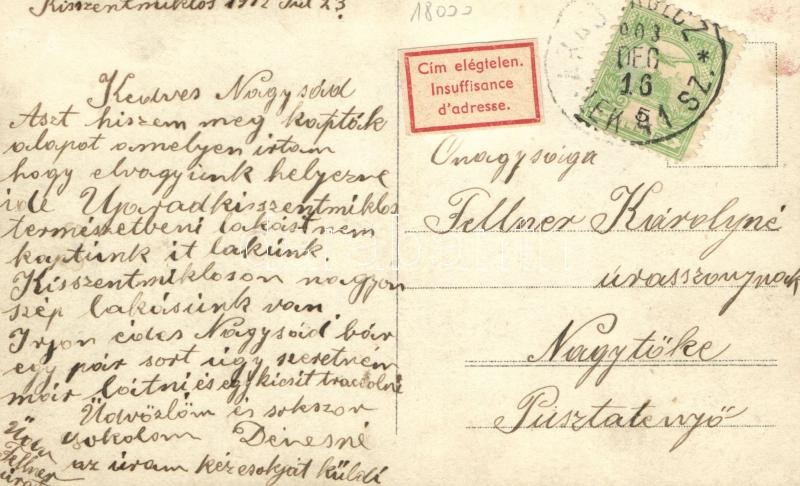 Kisszentmiklós 1912 Jul 23
18000
Kedves Nagysád
Aszt hiszem meg kapták
alapot amelyen irtam
hogy elvagyunk helyezve
ide Ujaradkisszentmiklos
termeszetbeni lakást nem
kaptunk it lakunk.
Kisszentmikloson nagyon
szép lakásunk van
Irjon édes Nagysád bár
egy pár sort úgy szeretném
már látni és egy kicsit traccolni
Üdvözlöm és sokszor
csokolom Dénesné
az úram kézcsokját küldi
Fellner
Cím elégtelen.
Insuffisance
d'adresse.
903
DEC
16
51 SZ.*
Onagysága
Fellner Károlyné
úrasszonynak
Nagytőke
Pusztatenyő